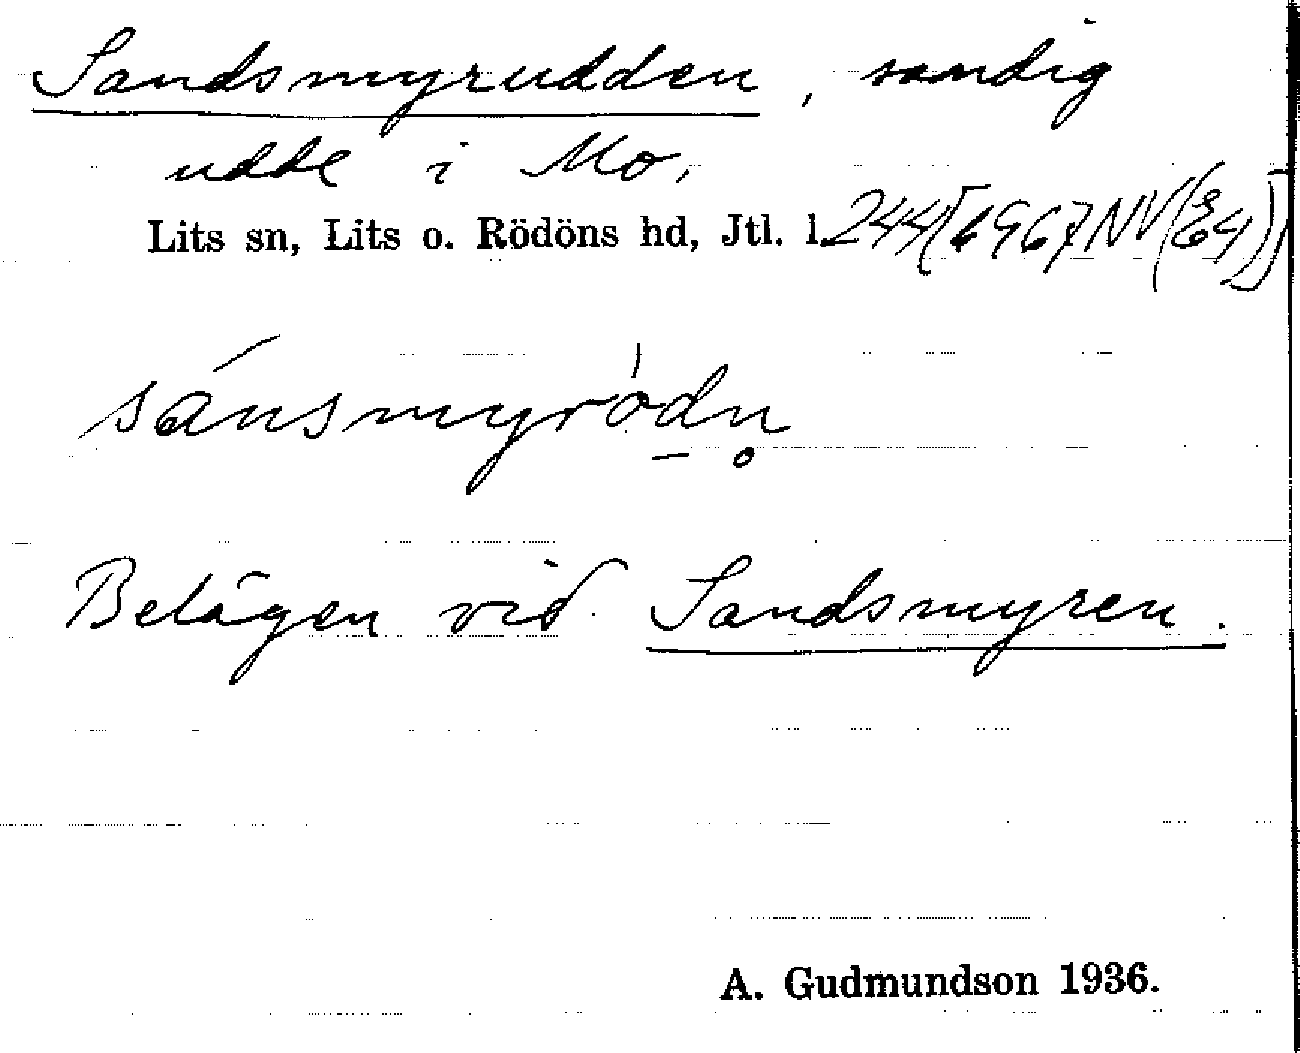 Sandsmyrudden, sandig
udde i Mo,
Lits sn, Lits o. Rödöns hd, Jtl. l.
sánsmyròdn̥
Belägen vid Sandsmyren.
A. Gudmundson 1936.